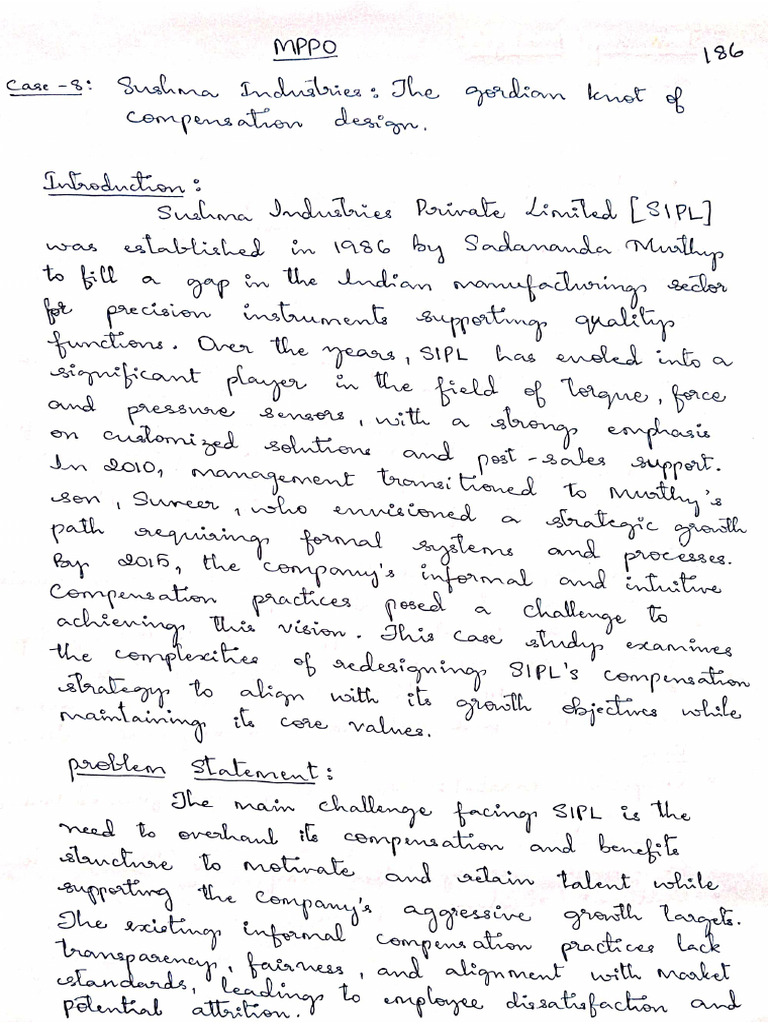 MPPO
186
Case -8: Sushma Industries: The gordian knot of
compensation design.
Introduction:
Sushma Industries Private Limited [SIPL]
was established in 1986 by Sadananda Murthy
to fill a gap in the Indian manufacturing sector
for precision instruments supporting quality
functions. Over the years, SIPL has evoled into a
significant player in the field of torque, force
and pressure sensors, with a strong emphasis
on customized solutions and post-sales support.
In 2010, management transitioned to Murthy's
son, Suveer, who envisioned a strategic growth
path requiring formal systems and processes.
By 2015, the company's informal and intuitive
Compensation practices posed a challenge to
achieving this vision. This case study examines
the complexities of redesigning SIPL's compensation
strategy to align with its growth objectives while
maintaining its core values.
problem statement:
The main challenge facing SIPL is the
need to overhaul its compensation and benefits
structure to motivate and retain talent while
supporting the company's aggressive growth targets.
The existing informal compensation practices lack
transparency, fairness, and alignment with market
standards, leading to employee dissatisfaction and
potential attrition.